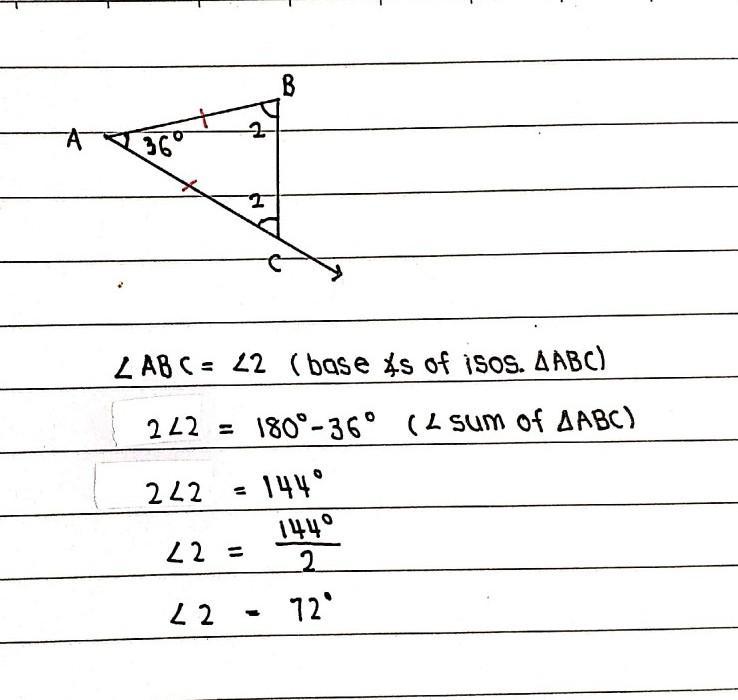 B
A
36°
2
2
C
∠ABC = ∠2 (base ∡s of isos. ΔABC)
2∠2 = 180° - 36° (∠ sum of ΔABC)
2∠2 = 144°
∠2 = 144°/2
∠2 = 72°